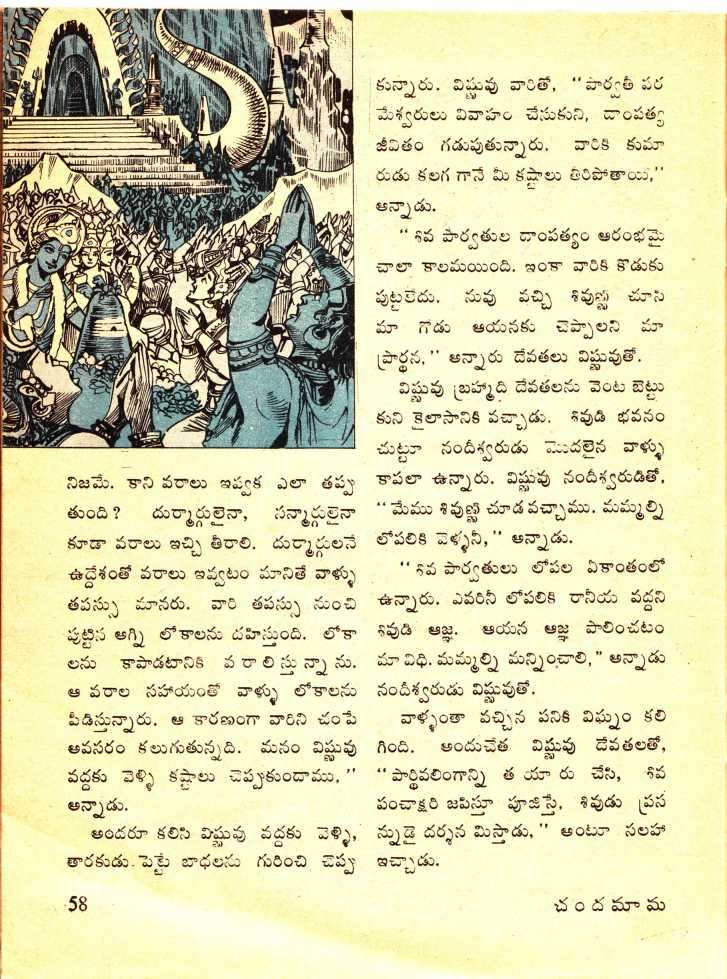 నిజమే. కాని వరాలు ఇవ్వక ఎలా తప్పు
తుంది? దుర్మార్గులైనా, సన్మార్గులైనా
కూడా వరాలు ఇచ్చి తీరాలి. దుర్మార్గులనే
ఉద్దేశంతో వరాలు ఇవ్వటం మానితే వాళ్ళు
తపస్సు మానరు. వారి తపస్సు నుంచి
పుట్టిన అగ్ని లోకాలను దహిస్తుంది. లోకా
లను కాపాడటానికి వరాలిస్తున్నాను.
ఆ వరాల సహాయంతో వాళ్ళు లోకాలను
పీడిస్తున్నారు. ఆ కారణంగా వారిని చంపే
అవసరం కలుగుతున్నది. మనం విష్ణువు
వద్దకు వెళ్ళి కష్టాలు చెప్పుకుందాము,''
అన్నాడు.
అందరూ కలిసి విష్ణువు వద్దకు వెళ్ళి,
తారకుడు పెట్టే బాధలను గురించి చెప్పు
కున్నారు. విష్ణువు వారితో, ''పార్వతీ పర
మేశ్వరులు వివాహం చేసుకుని, దాంపత్య
జీవితం గడుపుతున్నారు. వారికి కుమా
రుడు కలగ గానే మీ కష్టాలు తీరిపోతాయి,''
అన్నాడు.
''శివ పార్వతుల దాంపత్యం ఆరంభమై
చాలా కాలమయింది. ఇంకా వారికి కొడుకు
పుట్టలేదు. నువు వచ్చి శివుణ్ణి చూసి
మా గోడు ఆయనకు చెప్పాలని మా
ప్రార్థన,'' అన్నారు దేవతలు విష్ణువుతో.
విష్ణువు బ్రహ్మాది దేవతలను వెంట బెట్టు
కుని కైలాసానికి వచ్చాడు. శివుడి భవనం
చుట్టూ నందీశ్వరుడు మొదలైన వాళ్ళు
కాపలా ఉన్నారు. విష్ణువు నందీశ్వరుడితో,
''మేము శివుణ్ణి చూడ వచ్చాము. మమ్మల్ని
లోపలికి వెళ్ళని,'' అన్నాడు.
''శివ పార్వతులు లోపల ఏకాంతంలో
ఉన్నారు. ఎవరినీ లోపలికి రానీయ వద్దని
శివుడి ఆజ్ఞ. ఆయన ఆజ్ఞ పాలించటం
మా విధి. మమ్మల్ని మన్నించాలి,'' అన్నాడు
నందీశ్వరుడు విష్ణువుతో.
వాళ్ళంతా వచ్చిన పనికి విఘ్నం కలి
గింది. అందుచేత విష్ణువు దేవతలతో,
''పార్థివలింగాన్ని తయారు చేసి, శివ
పంచాక్షరి జపిస్తూ పూజిస్తే, శివుడు ప్రస
న్నుడై దర్శన మిస్తాడు,'' అంటూ సలహా
ఇచ్చాడు.
58
చందమామ